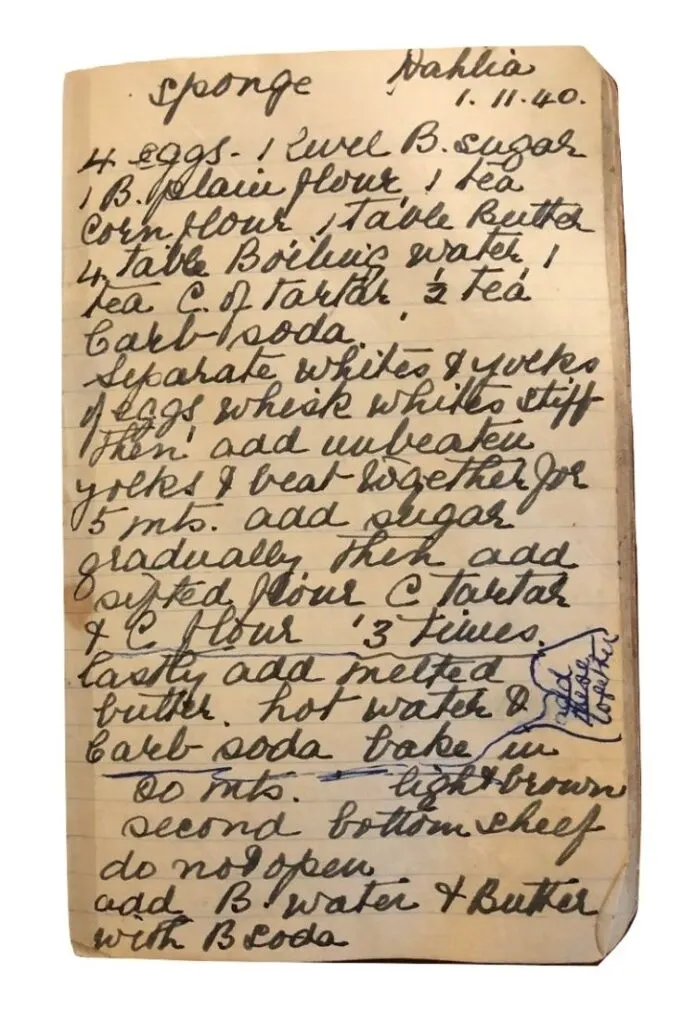 sponge Dahlia
1.11.40.
4 eggs - 1 level B. sugar
1 B. plain flour, 1 tea
corn flour 1 table Butter
4 table Boiling water, 1
tea C. of tartar ½ tea
Carb soda.
separate whites & yolks
of eggs whisk whites stiff
then add unbeaten
yolks & beat together for
5 mts. add sugar
gradually then add
sifted flour C tartar
& C flour 3 times.
lastly add melted
butter. hot water &
Carb soda bake in
mts. light brown
second bottom shelf
do not open
add B. water & Butter
with B soda
add
these
together